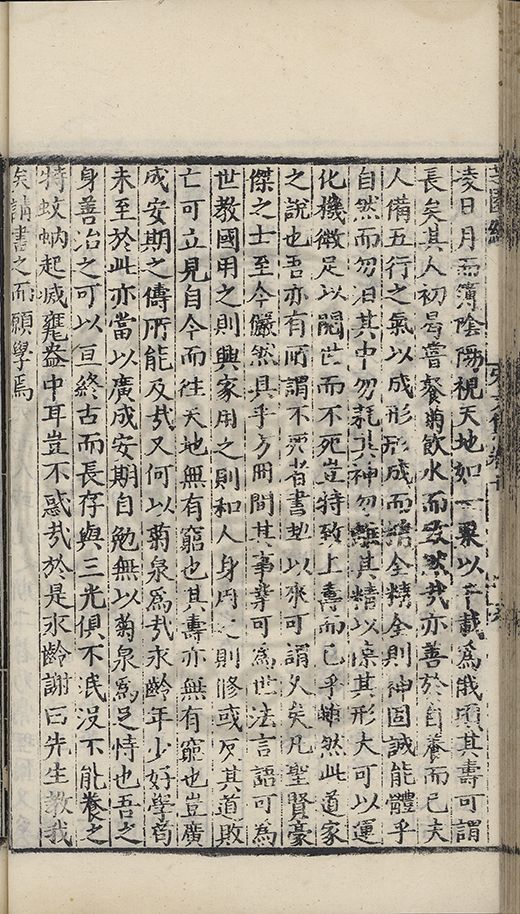 凌日月而薄陰陽視天地如一粟以千載為俄頃其壽可謂
長矣其人初曷嘗餐菊飲水而致然哉亦善於自養而已夫
人備五行之氣以成形形成而精全精全則神固誠能體乎
自然而勿汨其中勿耗其神勿無其精以葆其形大可以運
化機微足以閱世而不死豈特致上壽而已乎雖然此道家
之說也吾亦有所謂不死者書契以來可謂久矣凡聖賢豪
傑之士至今儼然具乎方冊間其事業可為世法言語可為
世教國用之則興家用之則和人身用之則修或反其道敗
亡可立見自今而往天地無有窮也其壽亦無有窮也豈廣
成安期之儔所能及哉又何以菊泉為哉永齡年少好學苟
未至於此亦當以廣成安期自勉無以菊泉為足恃也吾之
身善治之可以亘終古而長存與三光俱不泯沒不能養之
特蚊蚋起滅甕盎中耳豈不惑哉於是永齡謝曰先生教我
矣請書之而願學焉